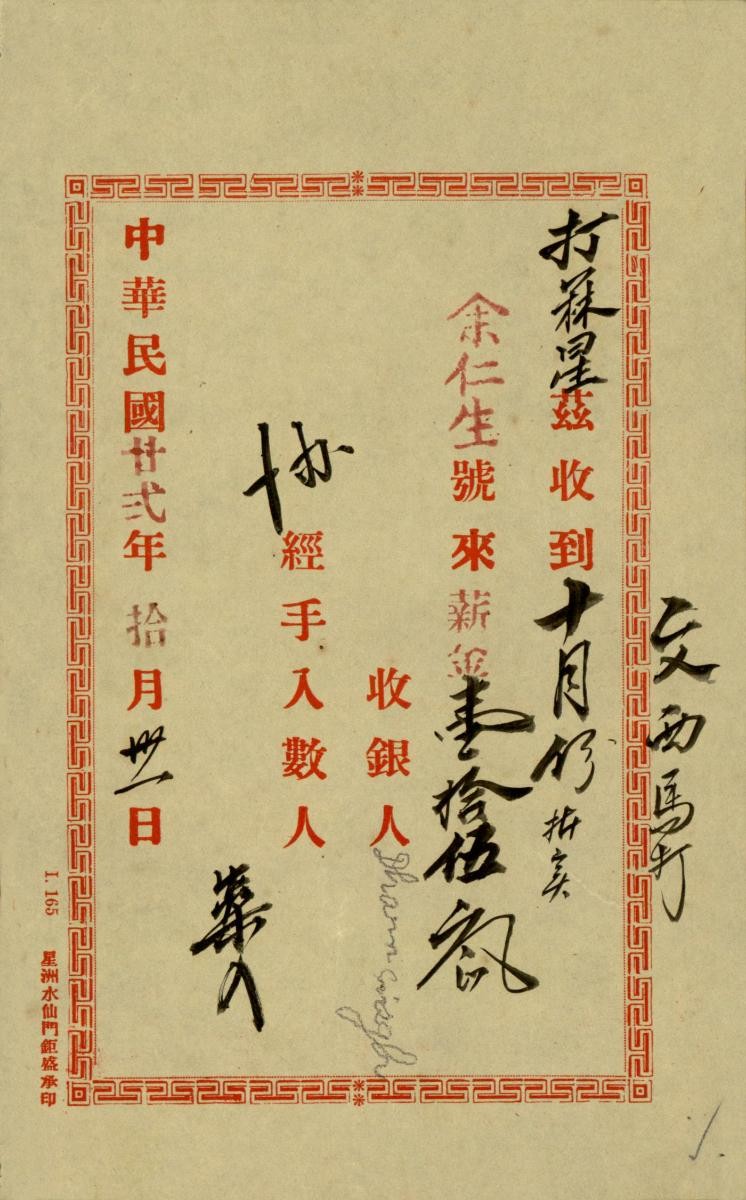 交西馬打
打蔴星茲收到十月份
余仁生號來薪金壹拾伍
收銀人 Dharm singh
經手入數人
中華民國廿弍年拾月卅一日
I. 165 星洲水仙門鉅盛承印